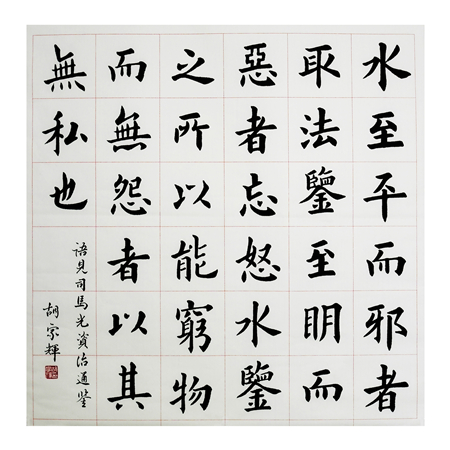 水至平而邪者
取法鑒至明而
惡者忘怒水鑒
之所以能窮物
而無怨者以其
無私也
語見司馬光資治通鑒
胡家輝